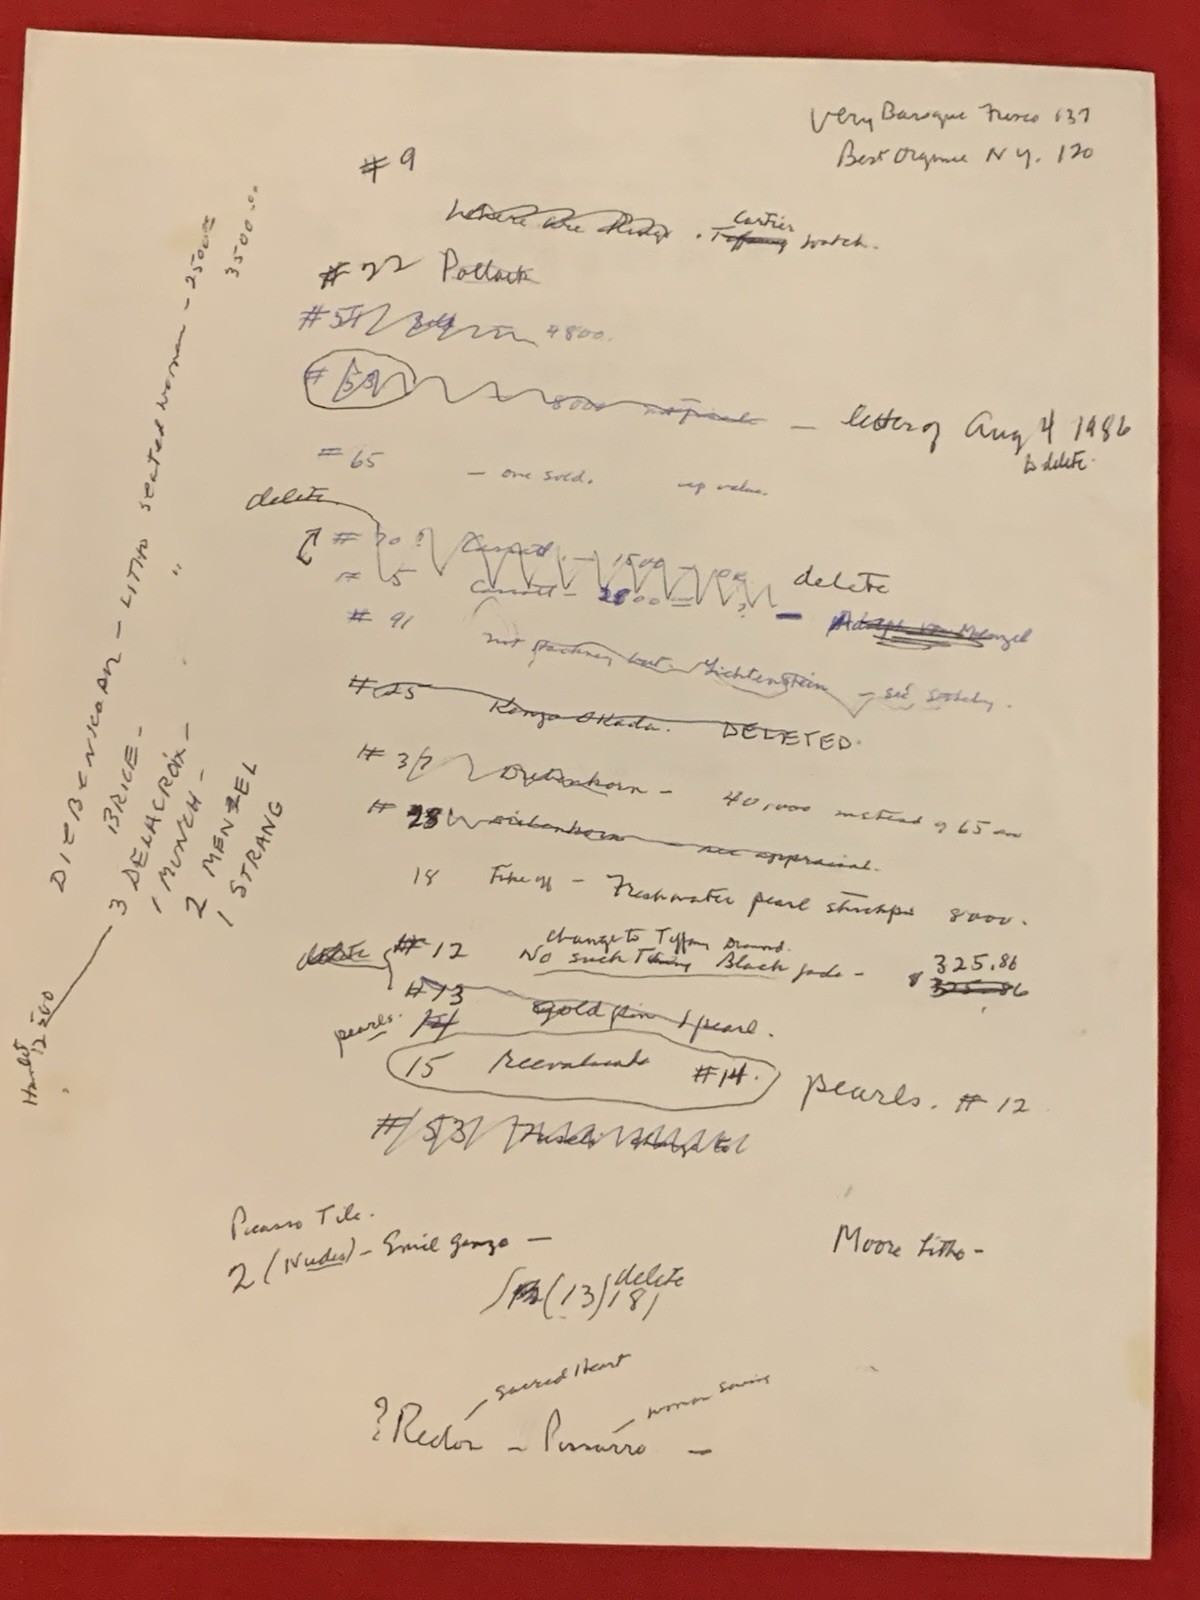 Very Baroque Fresco 137
Best Organic N.Y. 120
#9
Where are Rings . Tiffany Cartier watch.
#22 Pollack
#54 4800.
#53 8000 - letter of Aug 4 1986
to delete.
#65 - one sold. up value.
delete
#70? Cassatt - 1500 - OK delete
#5 Cassatt - 2800 - ? - Adolph von Menzel
#91 not but Lichtenstein - see Sotheby.
#25 Kenzo Okada. DELETED.
#37 Diebenkorn - 40,000 instead of 65
#28 Diebenkorn - see appraisal.
18 Take off - Freshwater pearl 8000.
change to Tiffany Diamond.
delete #12 No such Thing Black jade - 325.86
$ 325.86
#13 Gold pin 1 pearl.
pearls. 14
15 reevaluate #14. pearls. #12
#53 change to
Picasso Tile.
2 (Nudes) - Emil Ganzo -
Moore Litho -
delete
(13) 181
Sacred Heart
woman sewing
? Redon - Pissarro -
DIEBENKORN - LITHO seated woman - 2500
" 3500.00
BRICE -
3 DELACROIX -
1 MUNCH -
2 MENZEL
1 STRANG